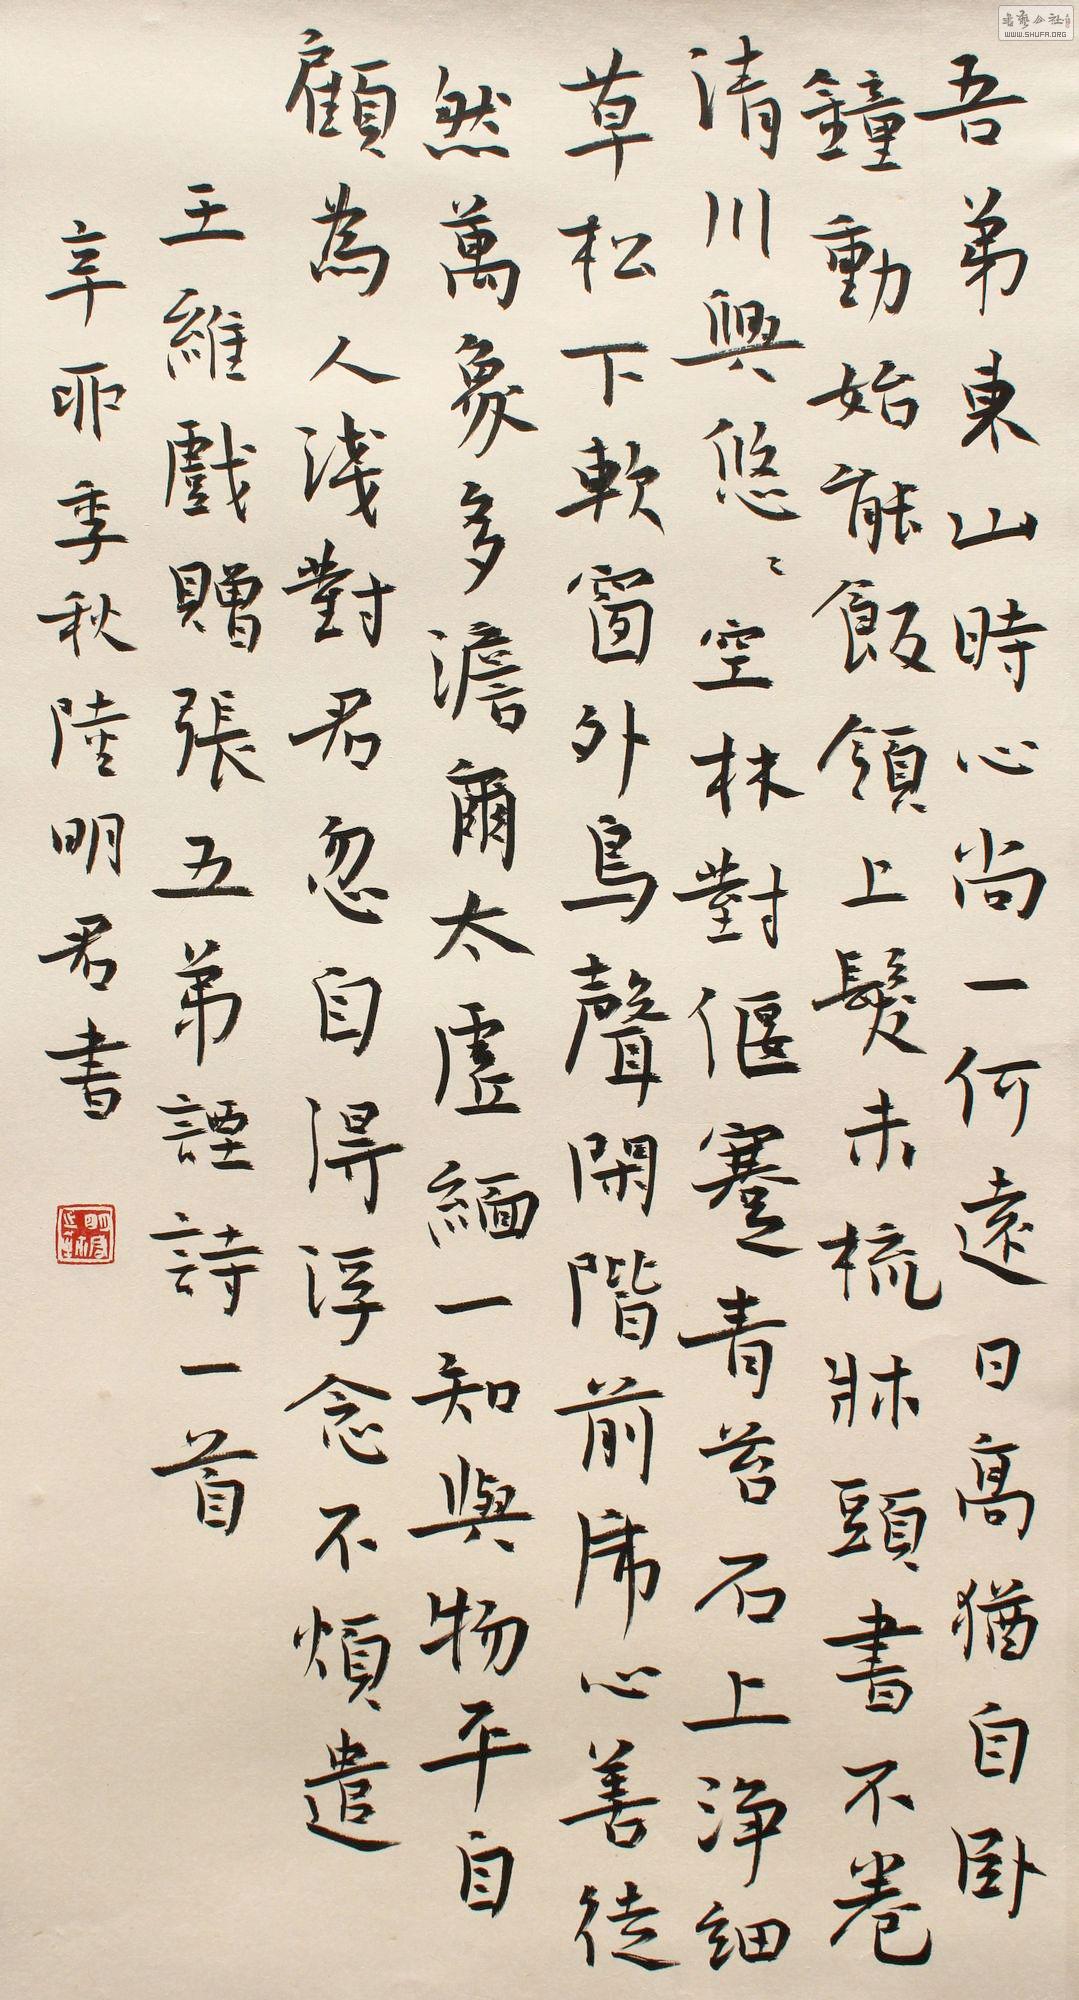 吾弟東山時心尚一何遠日高猶自卧
鐘動始能飯領上髮未梳牀頭書不卷
清川興悠〻空林對偃蹇青苔石上淨細
草松下軟窗外鳥聲閑階前席心善徒
然萬象多澹爾太虛緬一知與物平自
顧為人淺對君忽自得浮念不煩遣
王維戲贈張五弟諲詩一首
辛卯季秋陸明君書
書藝公社
WWW.SHUFA.ORG